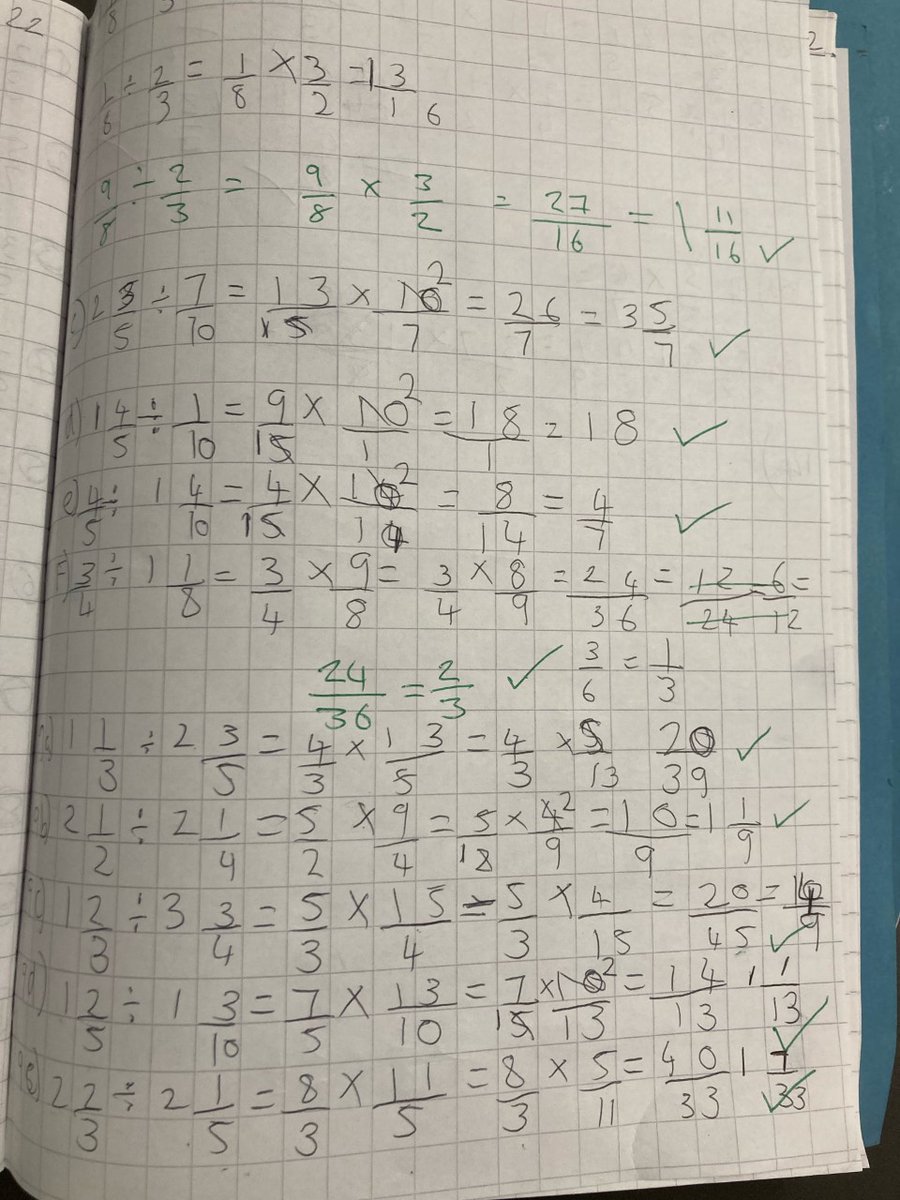 22
1/8 ÷ 2/3 = 1/8 × 3/2 = 1 3/16
9/8 ÷ 2/3 = 9/8 × 3/2 = 27/16 = 1 11/16 ✓
2 3/5 ÷ 7/10 = 13/5 × 10²/7 = 26/7 = 3 5/7 ✓
d) 1 4/5 ÷ 1/10 = 9/5 × 10²/1 = 18/1 = 18 ✓
e) 4/5 ÷ 1 4/10 = 4/5 × 10²/14 = 8/14 = 4/7 ✓
3/4 ÷ 1 1/8 = 3/4 × 9/8 = 3/4 × 8/9 = 24/36 = 12/24 = 6/12 =
24/36 = 2/3 ✓ 3/6 = 1/3
1 1/3 ÷ 2 3/5 = 4/3 × 13/5 = 4/3 × 5/13 20/39 ✓
b) 2 1/2 ÷ 2 1/4 = 5/2 × 9/4 = 5/2 × 4²/9 = 10/9 = 1 1/9 ✓
1 2/3 ÷ 3 3/4 = 5/3 × 15/4 = 5/3 × 4/15 = 20/45 = 4/9 ✓
d) 1 2/5 ÷ 1 3/10 = 7/5 × 13/10 = 7/5 × 10²/13 = 14/13 1 1/13 ✓
e) 2 2/3 ÷ 2 1/5 = 8/3 × 11/5 = 8/3 × 5/11 = 40/33 1 7/33 ✓